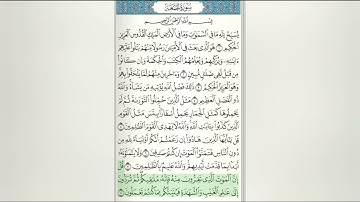 سُورَةُ الجُمُعَةِ
بِسْمِ ٱللَّهِ ٱلرَّحْمَٰنِ ٱلرَّحِيمِ
يُسَبِّحُ لِلَّهِ مَا فِي ٱلسَّمَٰوَٰتِ وَمَا فِي ٱلْأَرْضِ ٱلْمَلِكِ ٱلْقُدُّوسِ ٱلْعَزِيزِ
ٱلْحَكِيمِ ١ هُوَ ٱلَّذِي بَعَثَ فِي ٱلْأُمِّيِّـۧنَ رَسُولًا مِّنْهُمْ يَتْلُوا۟ عَلَيْهِمْ
ءَايَٰتِهِۦ وَيُزَكِّيهِمْ وَيُعَلِّمُهُمُ ٱلْكِتَٰبَ وَٱلْحِكْمَةَ وَإِن كَانُوا۟
مِن قَبْلُ لَفِي ضَلَٰلٍ مُّبِينٍ ٢ وَءَاخَرِينَ مِنْهُمْ لَمَّا يَلْحَقُوا۟ بِهِمْ
وَهُوَ ٱلْعَزِيزُ ٱلْحَكِيمُ ٣ ذَٰلِكَ فَضْلُ ٱللَّهِ يُؤْتِيهِ مَن يَشَآءُ وَٱللَّهُ
ذُو ٱلْفَضْلِ ٱلْعَظِيمِ ٤ مَثَلُ ٱلَّذِينَ حُمِّلُوا۟ ٱلتَّوْرَىٰةَ ثُمَّ لَمْ
يَحْمِلُوهَا كَمَثَلِ ٱلْحِمَارِ يَحْمِلُ أَسْفَارًۢا بِئْسَ مَثَلُ ٱلْقَوْمِ
ٱلَّذِينَ كَذَّبُوا۟ بِـَٔايَٰتِ ٱللَّهِ وَٱللَّهُ لَا يَهْدِي ٱلْقَوْمَ ٱلظَّٰلِمِينَ ٥
قُلْ يَٰٓأَيُّهَا ٱلَّذِينَ هَادُوٓا۟ إِن زَعَمْتُمْ أَنَّكُمْ أَوْلِيَآءُ لِلَّهِ مِن
دُونِ ٱلنَّاسِ فَتَمَنَّوُا۟ ٱلْمَوْتَ إِن كُنتُمْ صَٰدِقِينَ ٦ وَلَا يَتَمَنَّوْنَهُۥٓ
أَبَدًۢا بِمَا قَدَّمَتْ أَيْدِيهِمْ وَٱللَّهُ عَلِيمٌۢ بِٱلظَّٰلِمِينَ ٧ قُلْ
إِنَّ ٱلْمَوْتَ ٱلَّذِي تَفِرُّونَ مِنْهُ فَإِنَّهُۥ مُلَٰقِيكُمْ ثُمَّ تُرَدُّونَ
إِلَىٰ عَٰلِمِ ٱلْغَيْبِ وَٱلشَّهَٰدَةِ فَيُنَبِّئُكُم بِمَا كُنتُمْ تَعْمَلُونَ ٨